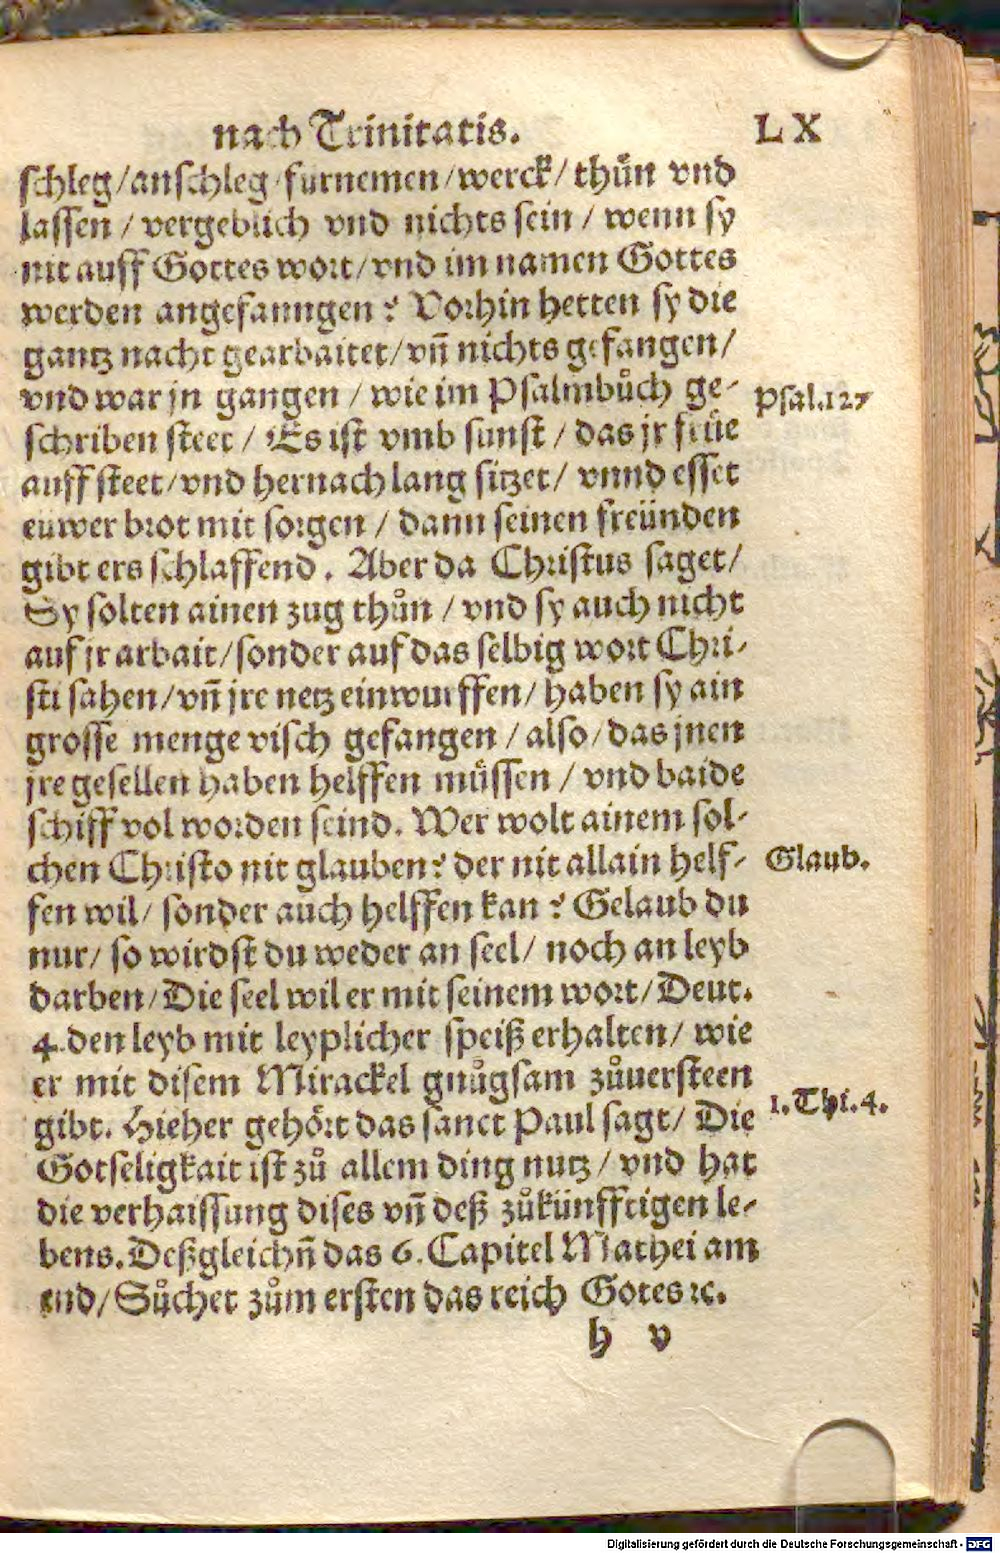 nach Trinitatis. LX
schleg/anschleg/furnemen/werck/thůn vnd
lassen/vergeblich vnd nichts sein/wenn sy
nit auff Gottes wort/vnd im namen Gottes
werden angefanngen? Vorhin hetten sy die
gantz nacht gearbaitet/vn̄ nichts gefangen/
vnd war jn gangen/wie im Psalmbůch ge-
Psal.127
schriben steet/Es ist vmb sunst/das jr früe
auff steet/vnd hernach lang sitzet/vnnd esset
euwer brot mit sorgen/dann seinen freünden
gibt ers schlaffend. Aber da Christus saget/
Sy solten ainen zug thůn/vnd sy auch nicht
auf jr arbait/sonder auf das selbig wort Chri-
sti sahen/vn̄ jre netz einwurffen/haben sy ain
grosse menge visch gefangen/also/das jnen
jre gesellen haben helffen müssen/vnd baide
schiff vol worden seind. Wer wolt ainem sol-
chen Christo nit glauben? der nit allain helf-
Glaub.
fen wil/sonder auch helffen kan? Gelaub du
nur/so wirdst du weder an seel/noch an leyb
darben/Die seel wil er mit seinem wort/Deut.
4.den leyb mit leyplicher speiß erhalten/wie
er mit disem Mirackel gnůgsam zůuersteen
gibt. Hieher gehört das sanct Paul sagt/Die
1.Thi.4.
Gotseligkait ist zů allem ding nutz/vnd hat
die verhaissung dises vn̄ deß zůkünfftigen le-
bens. Deßgleichn̄ das 6. Capitel Mathei am
end/Sůchet zům ersten das reich Gotes ꝛc.
h v
Digitalisierung gefördert durch die Deutsche Forschungsgemeinschaft - DFG